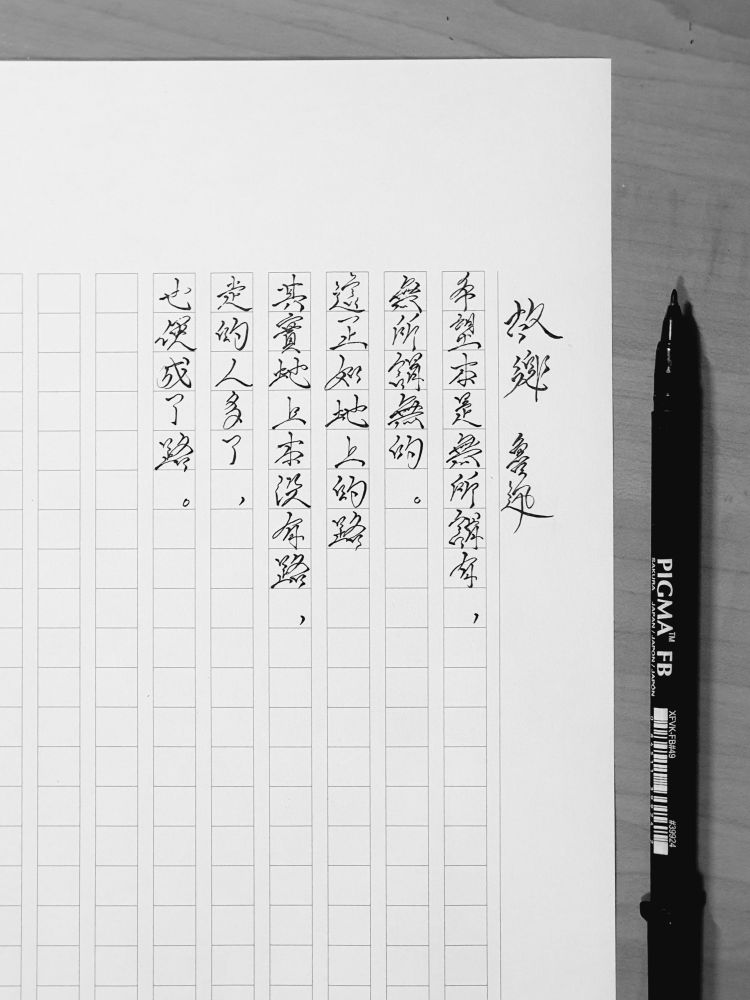 故鄉 魯迅
希望本是無所謂有，
無所謂無的。
這正如地上的路
其實地上本沒有路，
走的人多了，
也便成了路。
PIGMA™ FB
SAKURA JAPAN / JAPON / JAPÓN
XFVK-FB#49
#39924